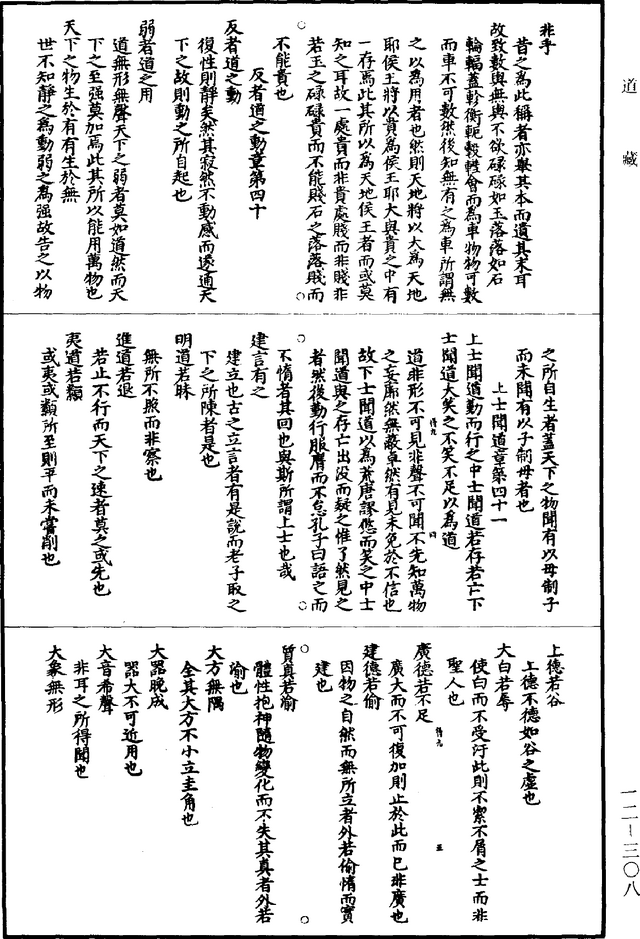 道藏
非乎
昔之為此稱者亦舉其本而遺其末耳
故致數輿無輿不欲碌碌如玉落落如石
輪輻蓋軫衡軛轂轊會而為車物物可數
而車不可數然後知無有之為車所謂無
之以為用者也然則天地將以大為天地
耶侯王將以貴為侯王耶大與貴之中有
一存焉此其所以為天地侯王者而或莫
知之耳故一處貴而非貴處賤而非賤非
若玉之碌碌貴而不能賤石之落落賤而
不能貴也
反者道之動章第四十
反者道之動
復性則靜矣然其寂然不動感而遂通天
下之故則動之所自起也
弱者道之用
道無形無聲天下之弱者莫如道然而天
下之至强莫加焉此其所以能用萬物也
天下之物生於有有生於無
世不知靜之為動弱之為强故告之以物
之所自生者蓋天下之物聞有以母制子
而未聞有以子制母者也
上士聞道章第四十一
上士聞道勤而行之中士聞道若存若亡下
士聞道大笑之不笑不足以為道
道非形不可見非聲不可聞不先知萬物
之妄廓然無蔽卓然有見未免於不信也
故下士聞道以為荒唐謬悠而笑之中士
聞道與之存亡出沒而疑之惟了然見之
者然後勤行服膺而不怠孔子曰語之而
不惰者其回也與斯所謂上士也哉
建言有之
建立也古之立言者有是說而老子取之
下之所陳者是也
明道若昧
無所不照而非察也
進道若退
若止不行而天下之速者莫之或先也
夷道若纇
或夷或纇所至則平而未嘗削也
上德若谷
上德不德如谷之虛也
大白若辱
使白而不受汙此則不絜不屑之士而非
聖人也
廣德若不足
廣大而不可復加則止於此而已非廣也
建德若偷
因物之自然而無所立者外若偷惰而實
建也
質真若渝
體性抱神隨物變化而不失其真者外若
渝也
大方無隅
全其大方不小立圭角也
大器晚成
器大不可近用也
大音希聲
非耳之所得聞也
大象無形
一二—三〇八